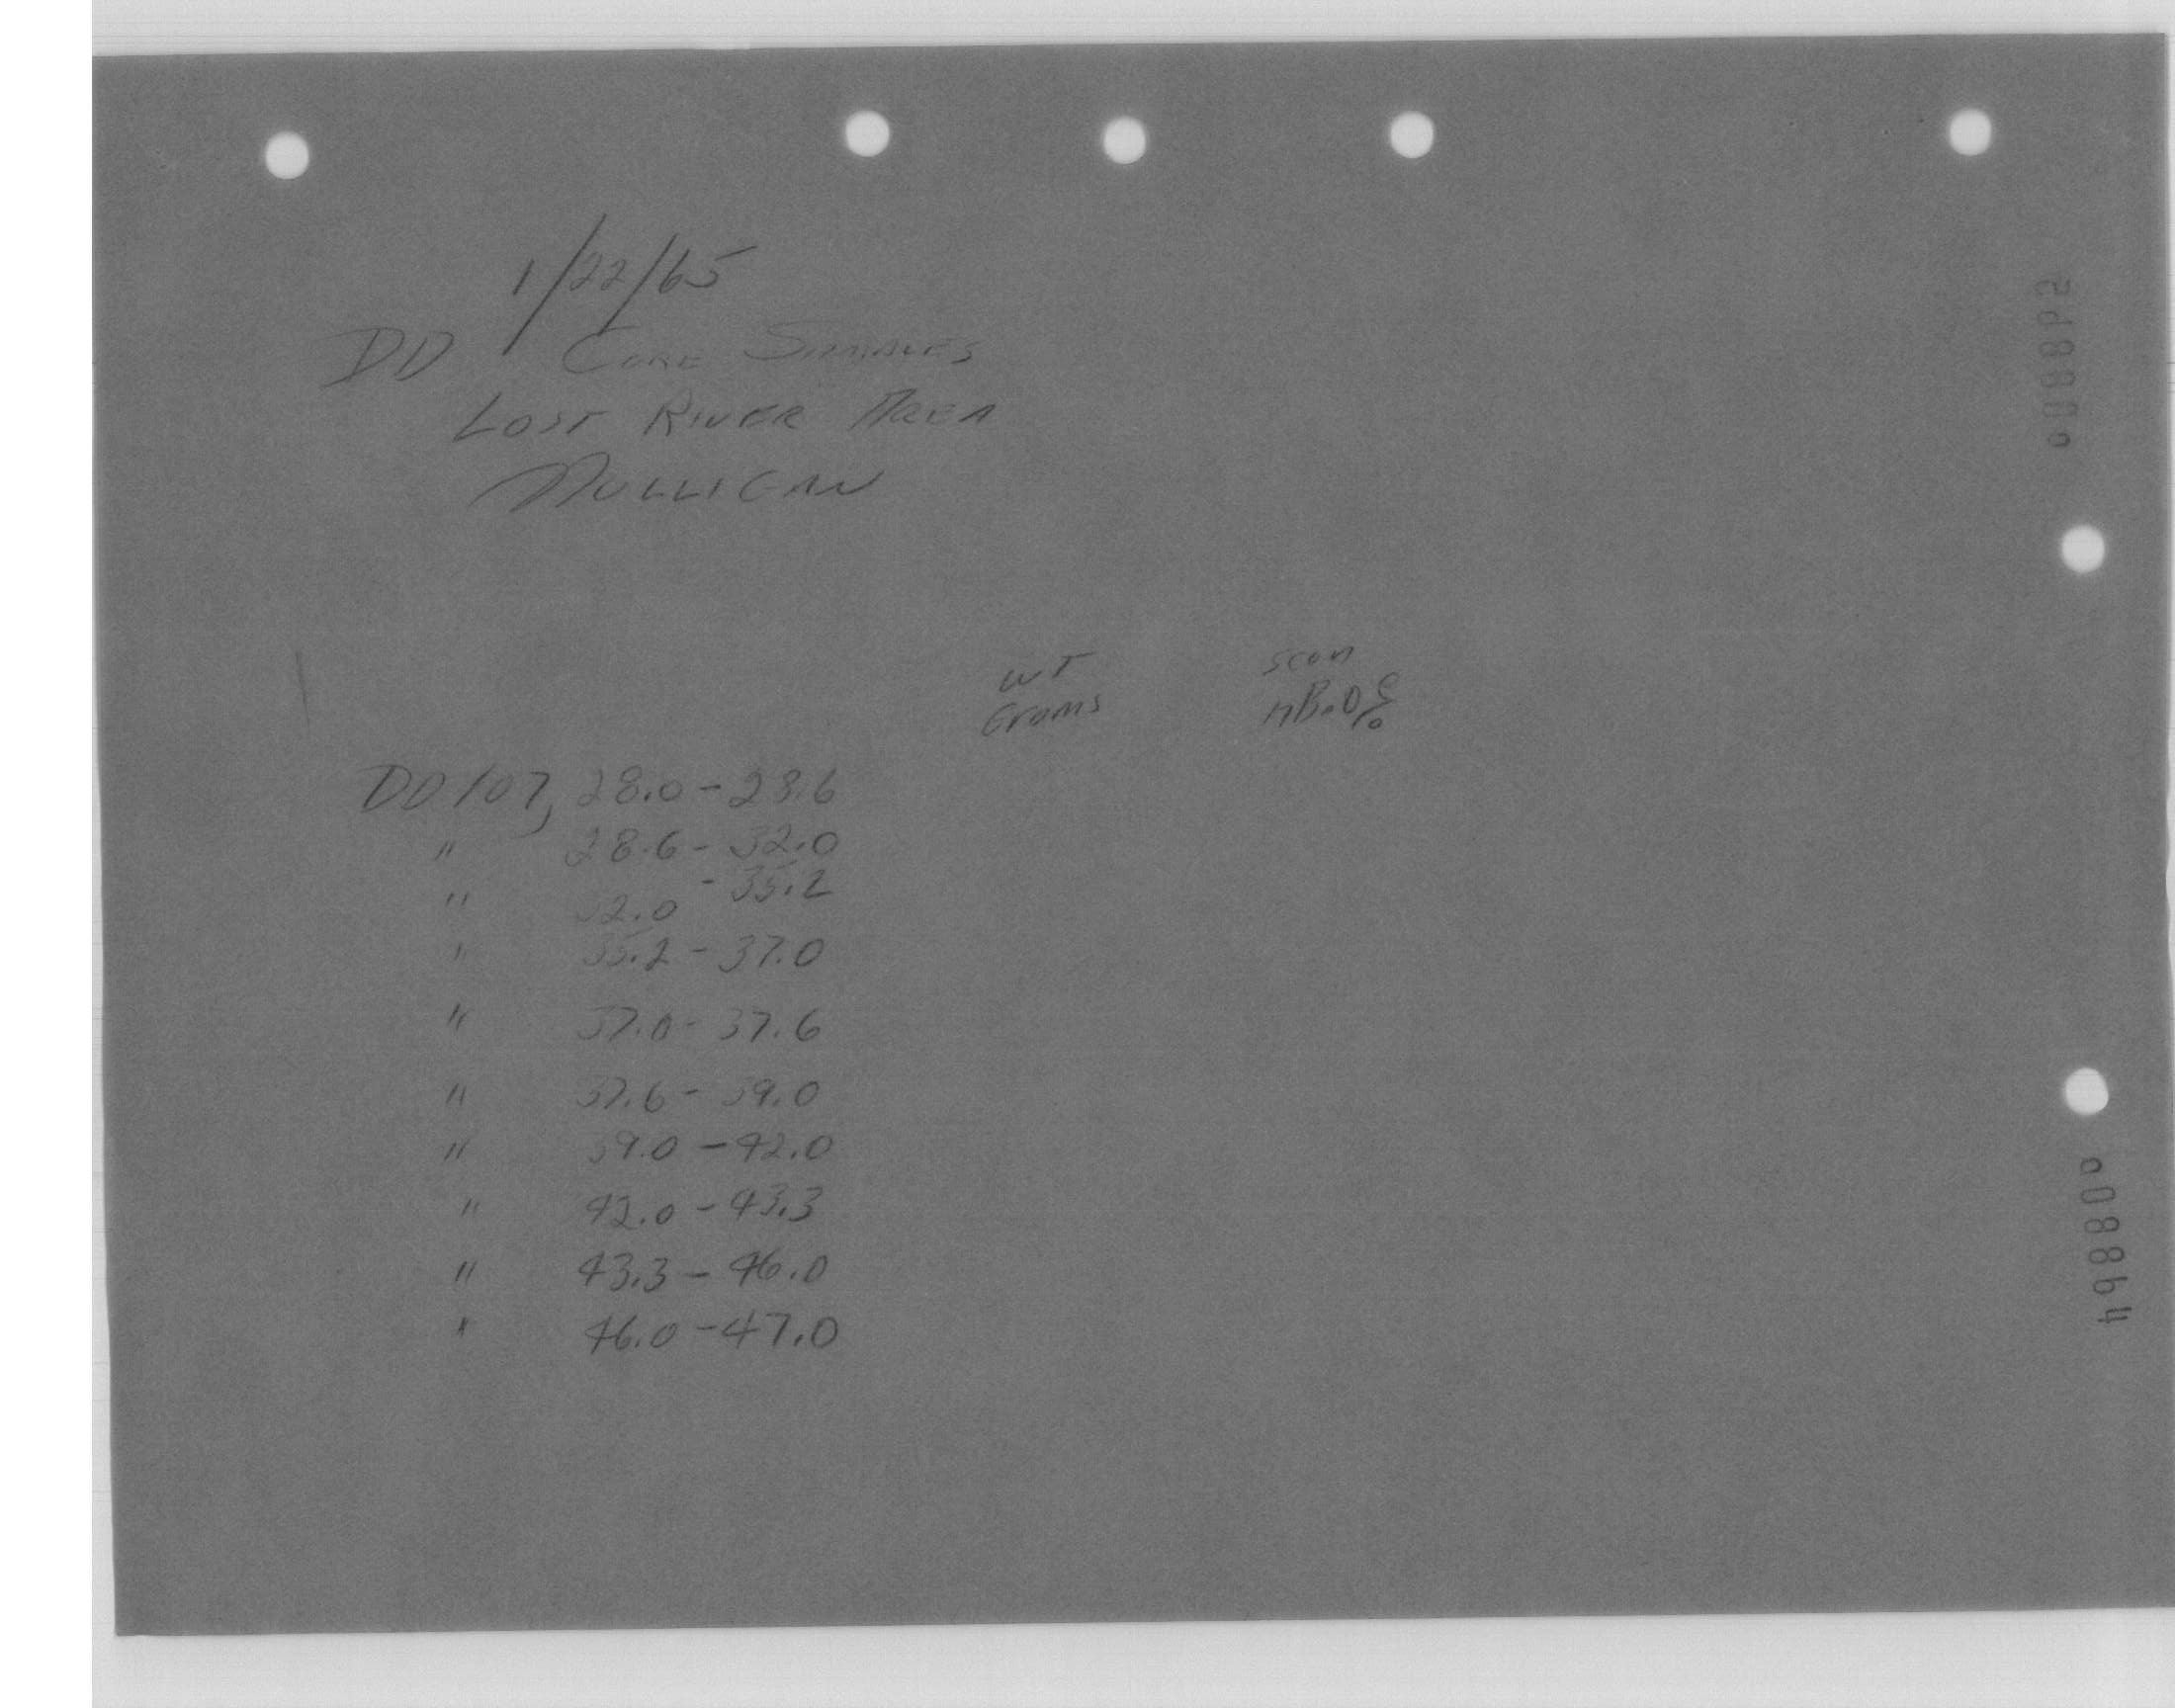 1/22/65
DD Core Samples
Lost River Area
Mulligan
wt scan
Grams %
DD 107, 28.0 - 28.6
" 28.6 - 32.0
" 32.0 - 35.2
" 35.2 - 37.0
" 37.0 - 37.6
" 37.6 - 39.0
" 39.0 - 42.0
" 42.0 - 43.3
" 43.3 - 46.0
" 46.0 - 47.0
008864